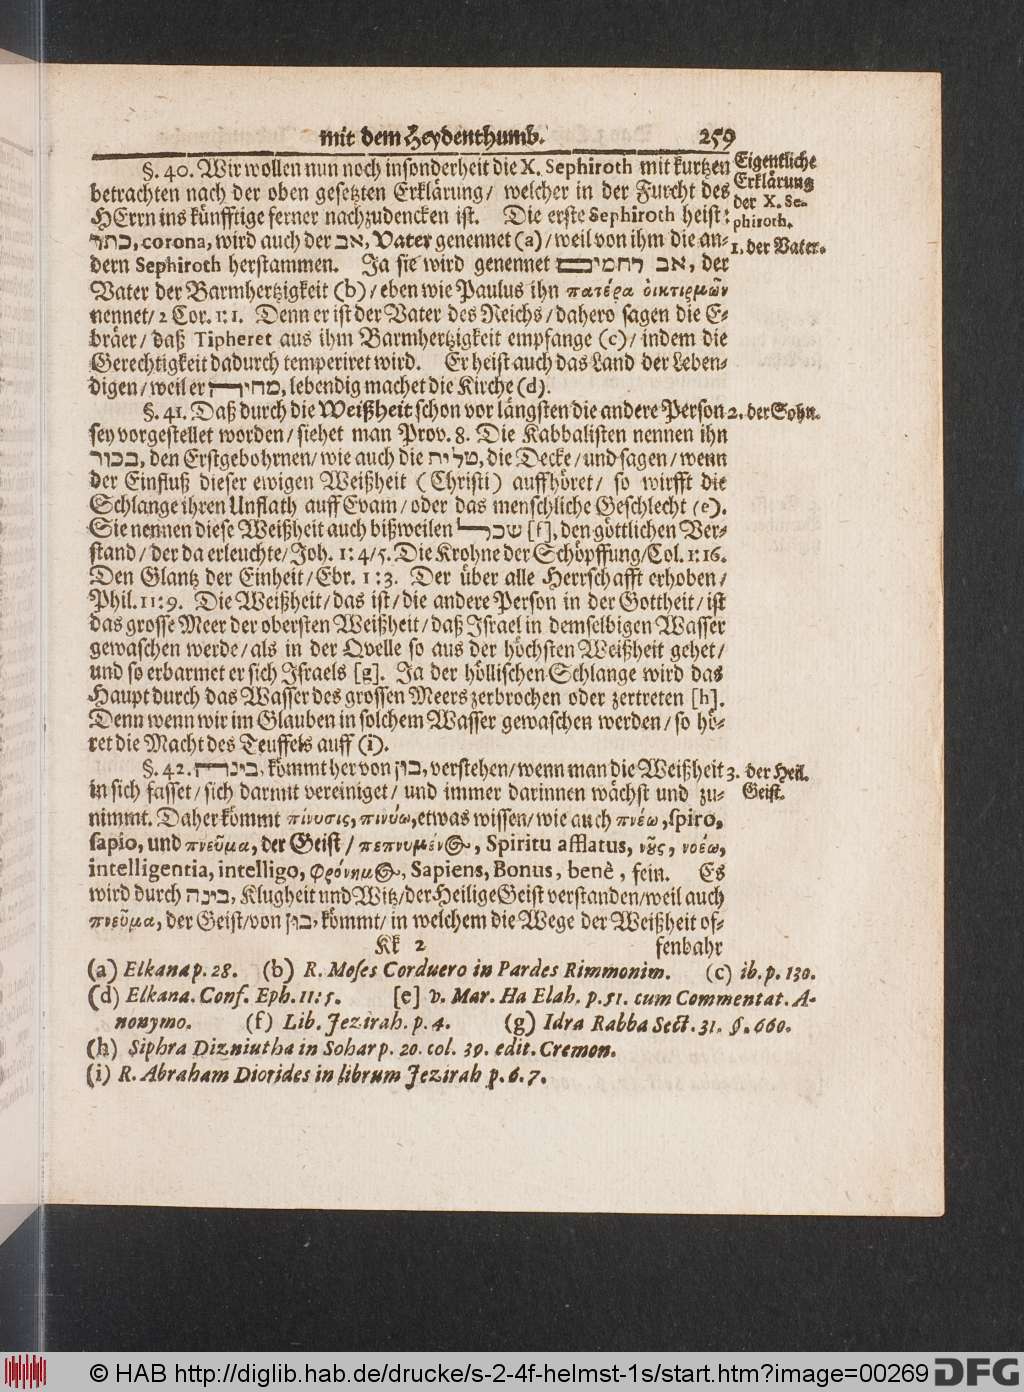 mit dem Heydenthumb. 259
§. 40. Wir wollen nun noch insonderheit die X. Sephiroth mit kurtzen
betrachten nach der oben gesetzten Erklärung/ welcher in der Furcht des
HErrn ins künfftige ferner nachzudencken ist. Die erste Sephiroth heist:
כתר, corona, wird auch der אב, Vater genennet (a)/ weil von ihm die an-
dern Sephiroth herstammen. Ja sie wird genennet אב רחמים, der
Vater der Barmhertzigkeit (b)/ eben wie Paulus ihn πατέρα ὀικτιρμῶν
nennet/ 2 Cor. 1: 1. Denn er ist der Vater des Reichs/ dahero sagen die E-
bräer/ daß Tipheret aus ihm Barmhertzigkeit empfange (c)/ indem die
Gerechtigkeit dadurch temperiret wird. Er heist auch das Land der Leben-
digen/ weil er מחיה, lebendig machet die Kirche (d).
Eigentliche
Erklärung
der X. Se-
phiroth.
1. der Vater.
§. 41. Daß durch die Weißheit schon vor längsten die andere Person
sey vorgestellet worden/ siehet man Prov. 8. Die Kabbalisten nennen ihn
בכור, den Erstgebohrnen/ wie auch die טלית, die Decke/ und sagen/ wenn
der Einfluß dieser ewigen Weißheit (Christi) auffhöret/ so wirfft die
Schlange ihren Unflath auff Evam/ oder das menschliche Geschlecht (e).
Sie nennen diese Weißheit auch bißweilen שכל [f], den göttlichen Ver-
stand/ der da erleuchte/ Joh. 1: 4/5. Die Krohne der Schöpffung/ Col. 1: 16.
Den Glantz der Einheit/ Ebr. 1: 3. Der über alle Herrschafft erhoben/
Phil. 11: 9. Die Weißheit/ das ist/ die andere Person in der Gottheit/ ist
das grosse Meer der obersten Weißheit/ daß Israel in demselbigen Wasser
gewaschen werde/ als in der Qvelle so aus der höchsten Weißheit gehet/
und so erbarmet er sich Israels [g]. Ja der höllischen Schlange wird das
Haupt durch das Wasser des grossen Meers zerbrochen oder zertreten [h].
Denn wenn wir im Glauben in solchem Wasser gewaschen werden/ so hö-
ret die Macht des Teuffels auff (i).
2. der Sohn.
§. 42. בינה, kömmt her von בון, verstehen/ wenn man die Weißheit
in sich fasset/ sich darmit vereiniget/ und immer darinnen wächst und zu-
nimmt. Daher kömmt πίνυσις, πινύω, etwas wissen/ wie auch πνέω, spiro,
sapio, und πνεῦμα, der Geist/ πεπνυμένος, Spiritu afflatus, νοῦς, νοέω,
intelligentia, intelligo, φρόνημος, Sapiens, Bonus, benè, fein. Es
wird durch בינה, Klugheit und Witz/ der Heilige Geist verstanden/ weil auch
πνεῦμα, der Geist/ von בון, kömmt/ in welchem die Wege der Weißheit of-
3. der Heil.
Geist.
Kk 2 fenbahr
(a) Elkana p. 28. (b) R. Moses Corduero in Pardes Rimmonim. (c) ib. p. 130.
(d) Elkana. Conf. Eph. 11: 5. [e] v. Mar. Ha Elah. p. 51. cum Commentat. A-
nonymo. (f) Lib. Jezirah. p. 4. (g) Idra Rabba Sect. 31. §. 660.
(h) Siphra Dizniutha in Sohar p. 20. col. 39. edit. Cremon.
(i) R. Abraham Diorides in librum Jezirah p. 6. 7.
© HAB http://diglib.hab.de/drucke/s-2-4f-helmst-1s/start.htm?image=00269 DFG